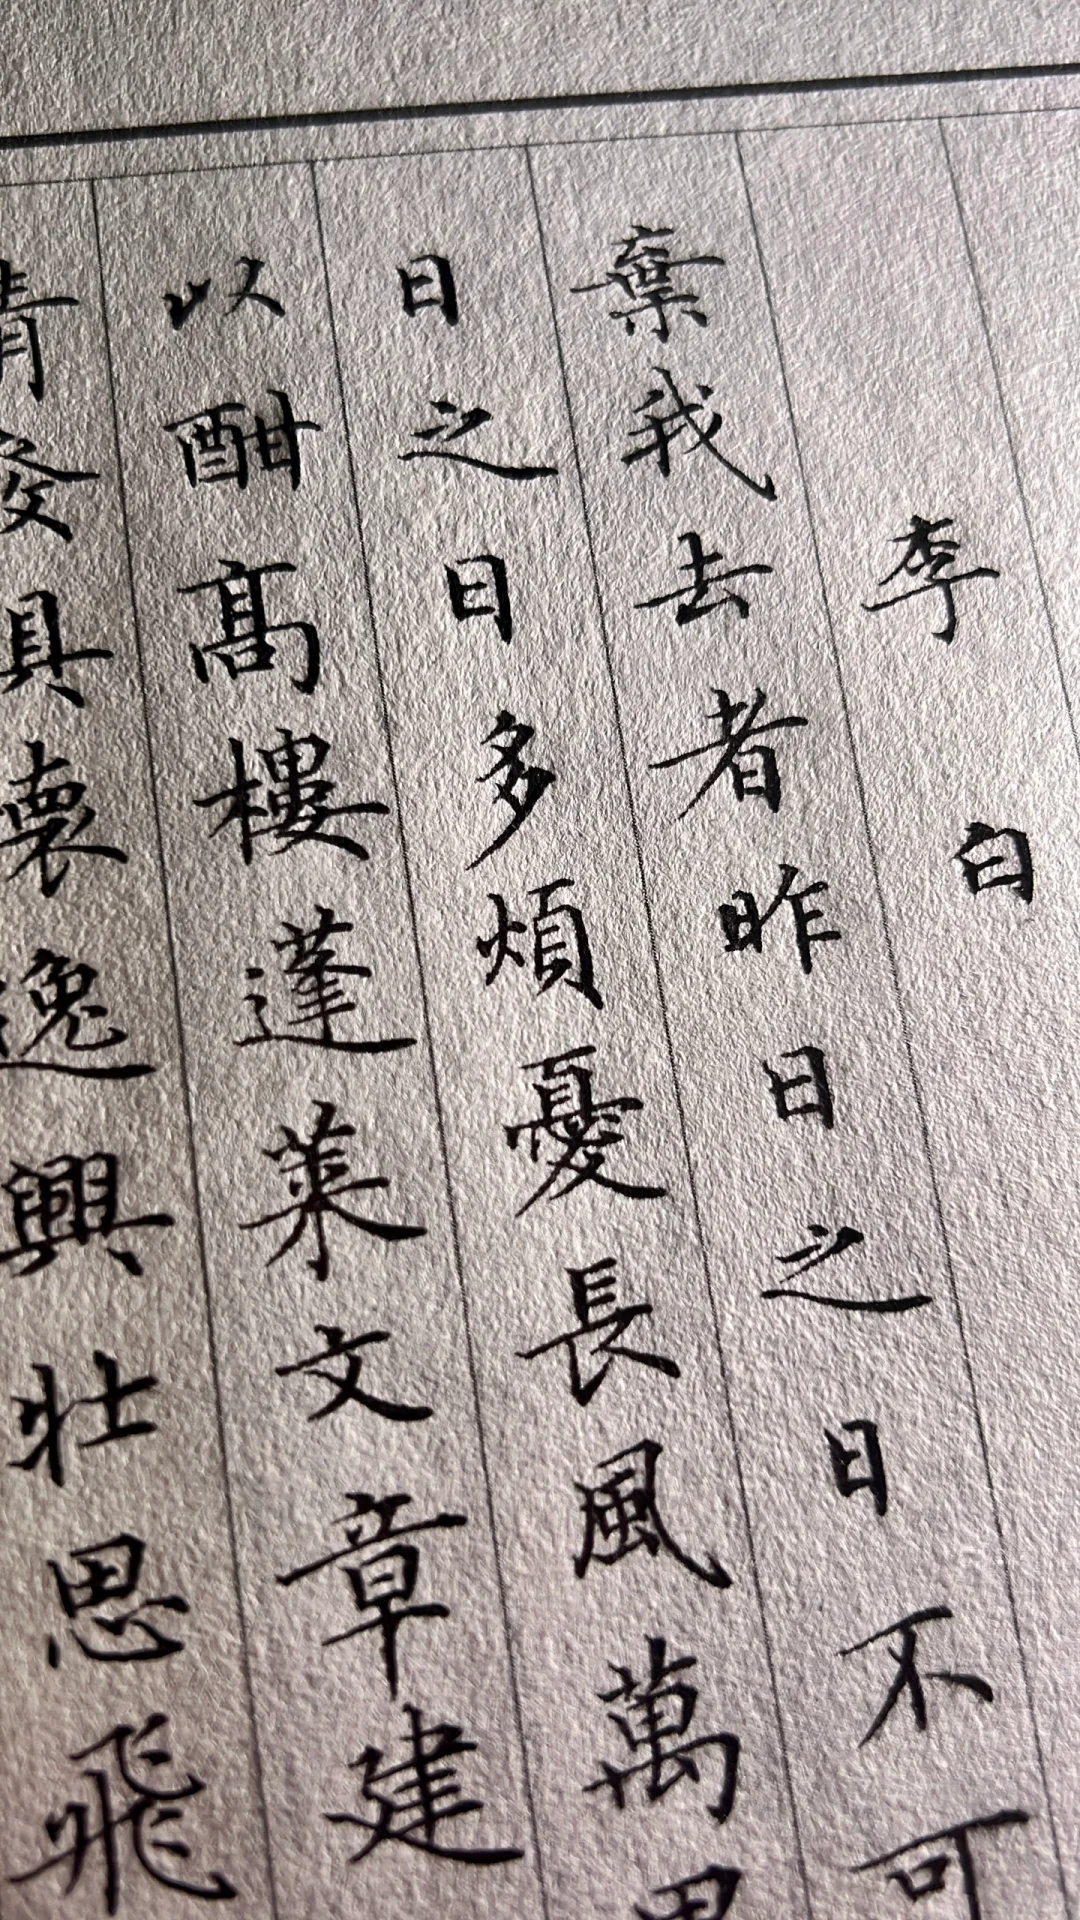 李白
棄我去者昨日之日不可
日之日多煩憂長風萬
以酣髙樓蓬萊文章建
清發俱懷逸興壯思飛